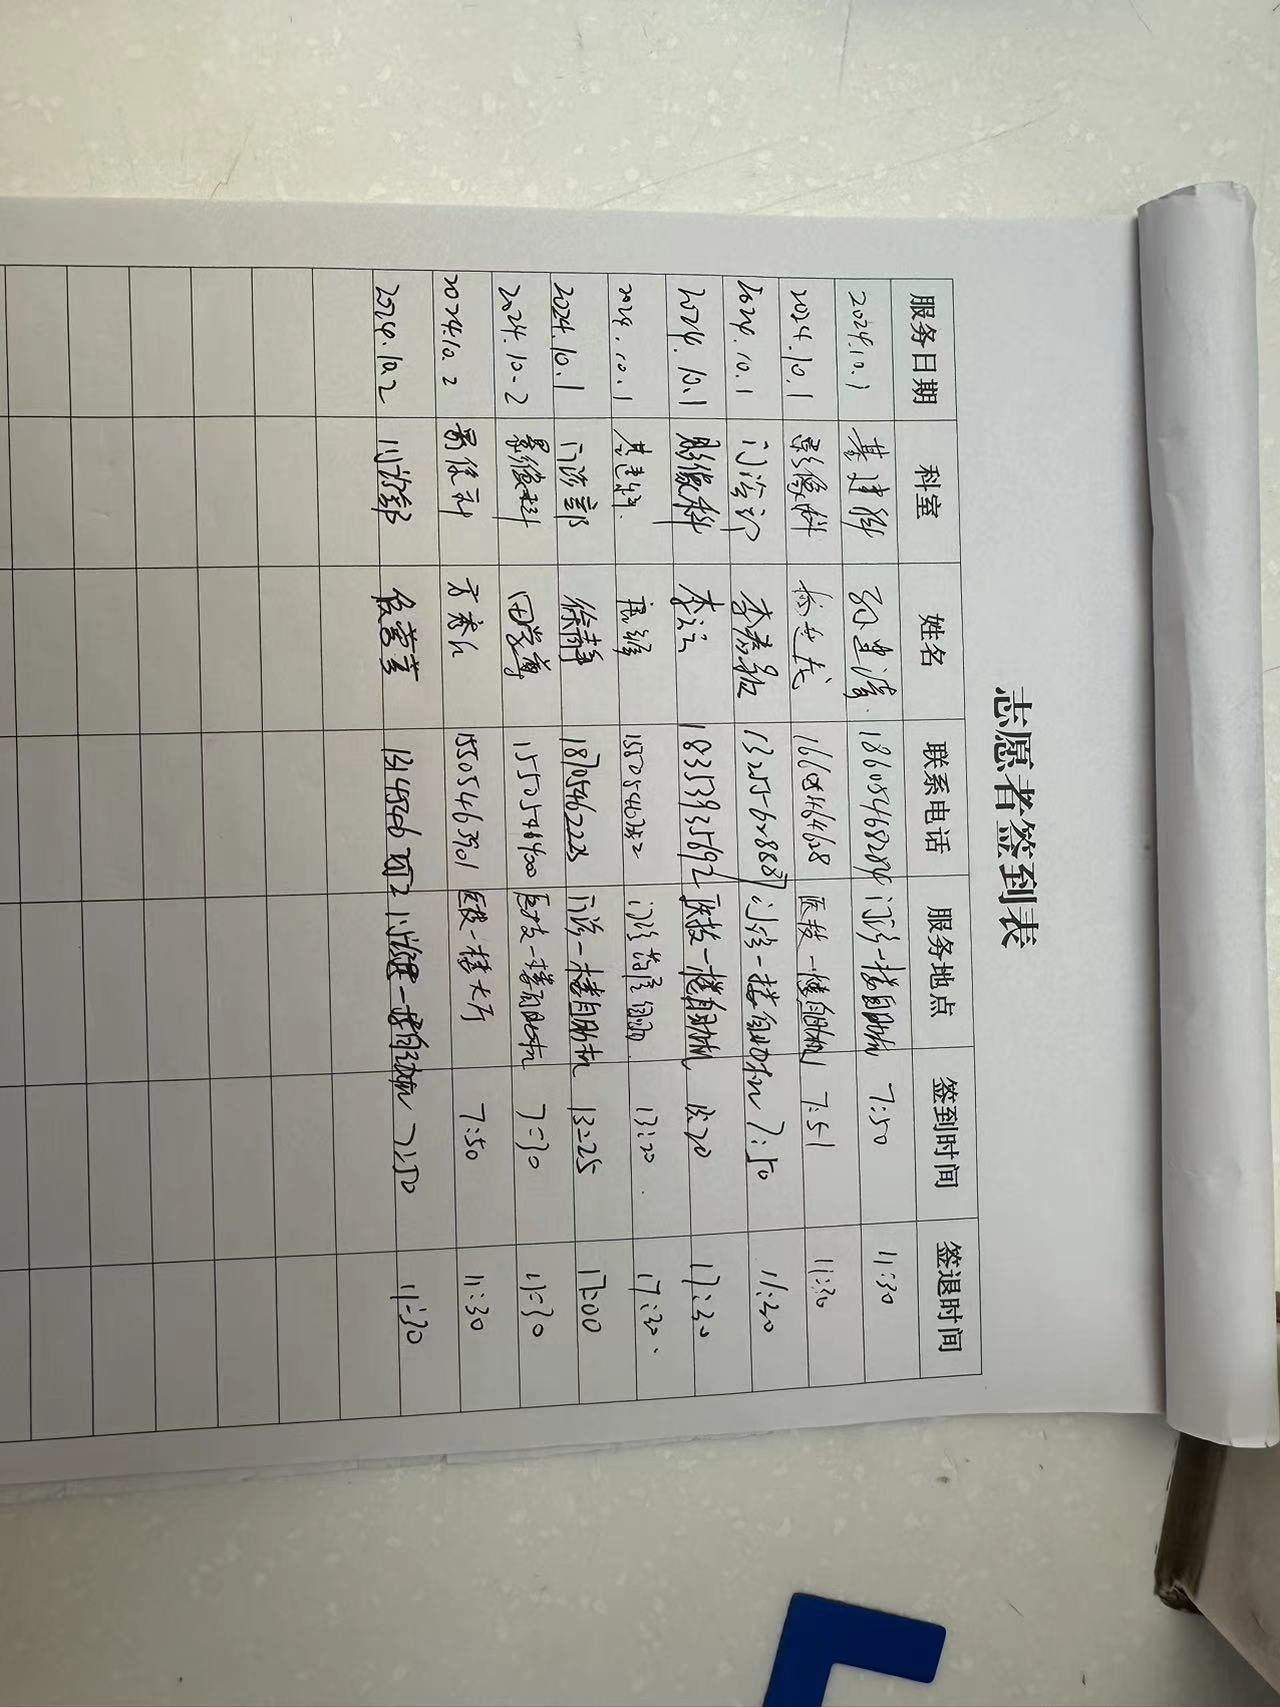 志愿者签到表
服务日期 科室 姓名 联系电话 服务地点 签到时间 签退时间
2024.10.1 基建科 孙建涛 18605468284 门诊一楼自助机 7:50 11:30
2024.10.1 影像科 16605464628 医技一楼自助机 7:51 11:30
2024.10.1 门诊部 李春 13255628887 门诊一楼自助机 7:50 11:30
2024.10.1 影像科 李云 18353935692 医技一楼自助机 13:20 17:30
2024.10.1 基建科 门诊 13:20 17:30
2024.10.1 门诊部 徐静 18705462223 门诊一楼自助机 13:25 17:00
2024.10.2 影像科 田学尊 15505546400 医技一楼自助机 7:30 11:30
2024.10.2 影像科 15505463901 医技一楼大厅 7:50 11:30
2024.10.2 门诊部 门诊一楼自助机 7:50 11:30